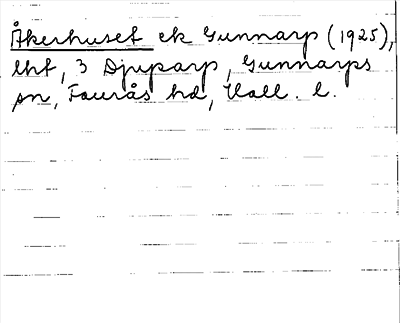 Åkerhuset ek Gunnarp (1925),
lht, 3 Djuparp, Gunnarps
sn, Faurås hd, Hall. l.